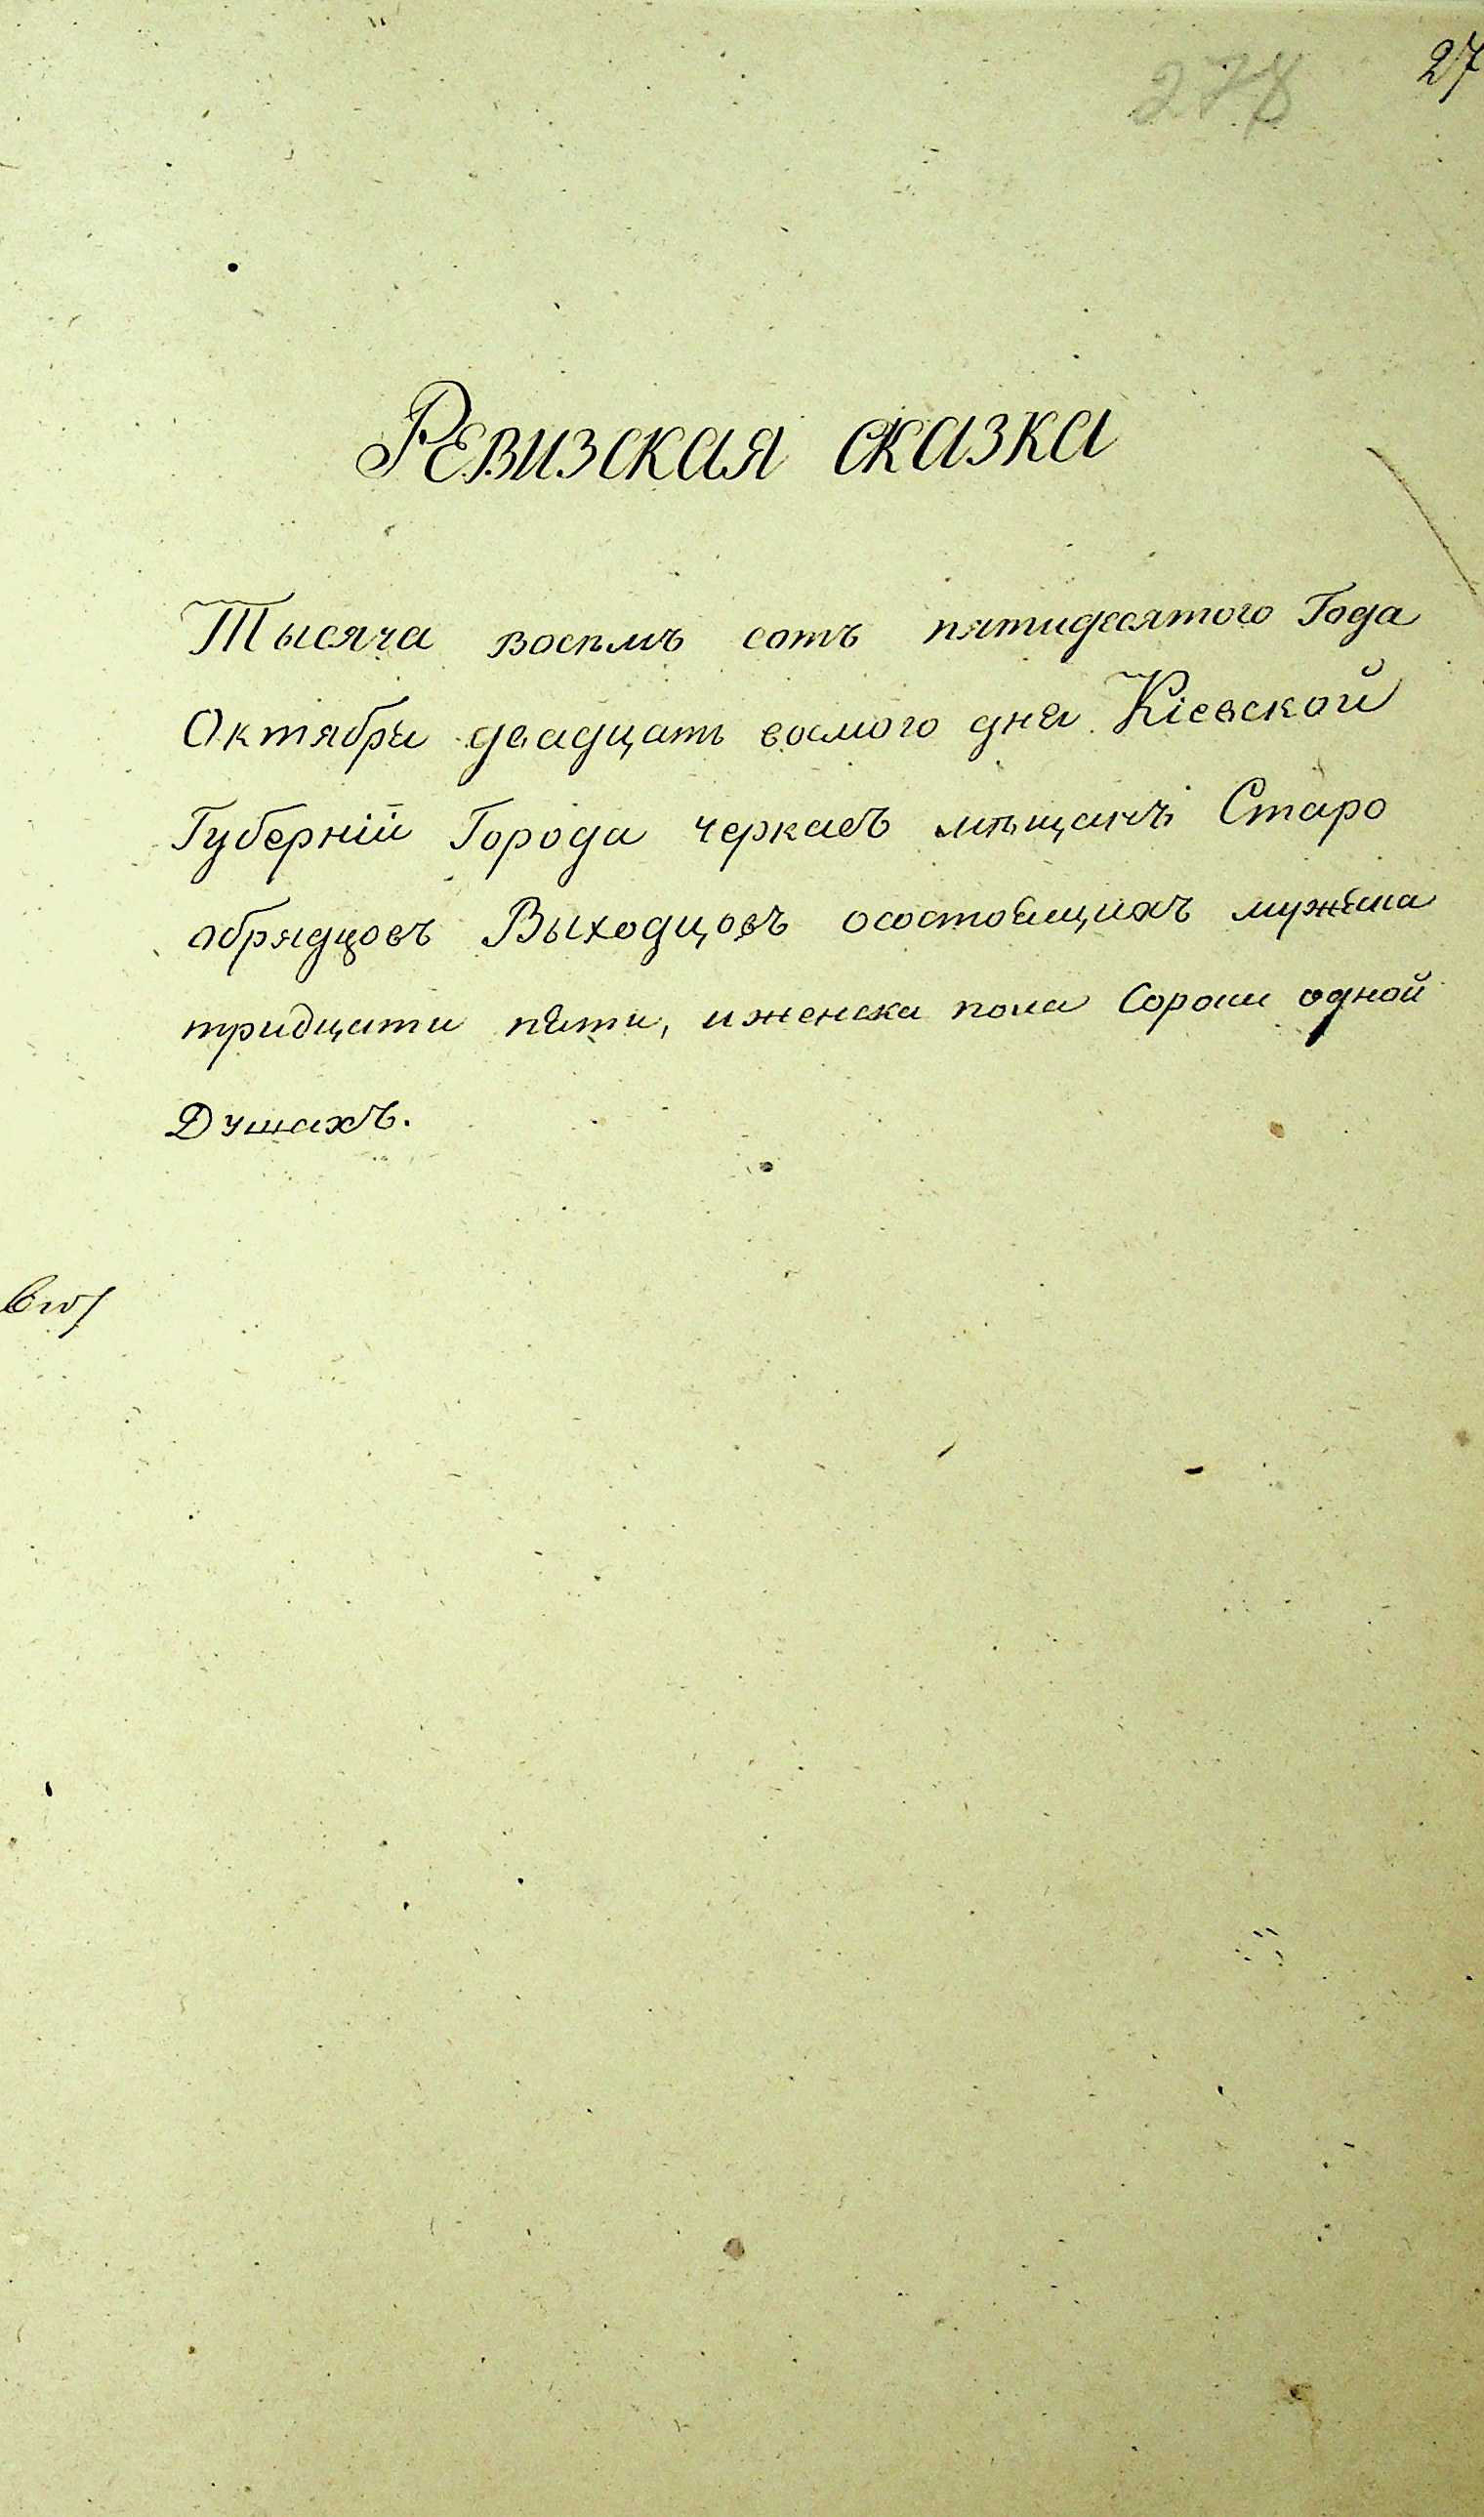 278
27
Ревизская сказка
Тысяча восемъ сотъ пятидесятого Года
Октября двадцать восмого дня Кіевской
Губерніи Города черкасъ мѣщанъ Старо
обрядцовъ Выходцовъ осостоящихъ мужеска
тридцати пяти, и женска пола Сорока одной
Душахъ.